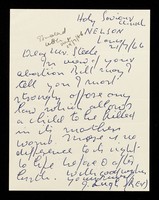 Holy Saviour
Church
NELSON
Lancs
Dear Mr. Steele
In view of your
abortion Bill may I
tell you I most
strongly oppose any
law which allows
a child to be killed
in its mothers
womb. There is no
difference to its right
to life before & after
birth. With good wishes
yours
J. Lynch (Rev)